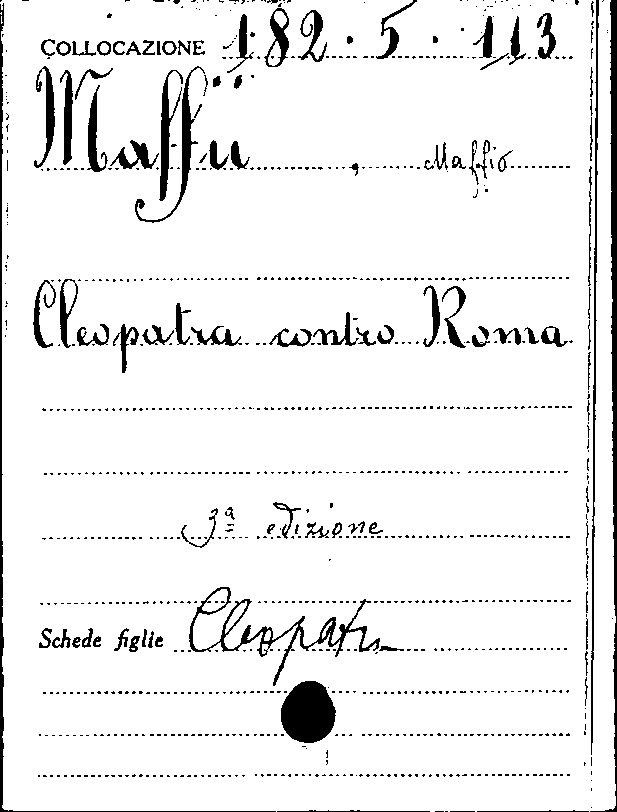 COLLOCAZIONE 182.5.113
Maffii, Maffio
Cleopatra contro Roma
3ª edizione
Schede figlie Cleopatra